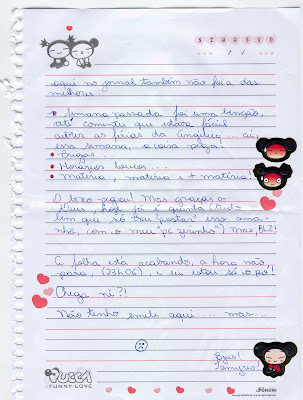 S T Q Q S S D
aqui no jornal também não foi a das
melhores.
Semana passada foi uma benção,
até comentei que estava fácil
cobrir as férias da Angélica... ai,
essa semana, a coisa pega!
Brigas...
Horários loucos...
Matéria, matéria e + matéria!
O bixo pegou! Mas graças a
Deus, hoje foi quinta (tudo
bem que só vou "postar" isso ama-
nhã, com o meu "pc zerinho") Mas, BLZ!
A folha está acabando, a hora não
para, (23h06), e eu estou só o pó!
Chega né?!
Não tenho smile aqui ... mas...
Bjus!
PUCCA
FUNNY LOVE